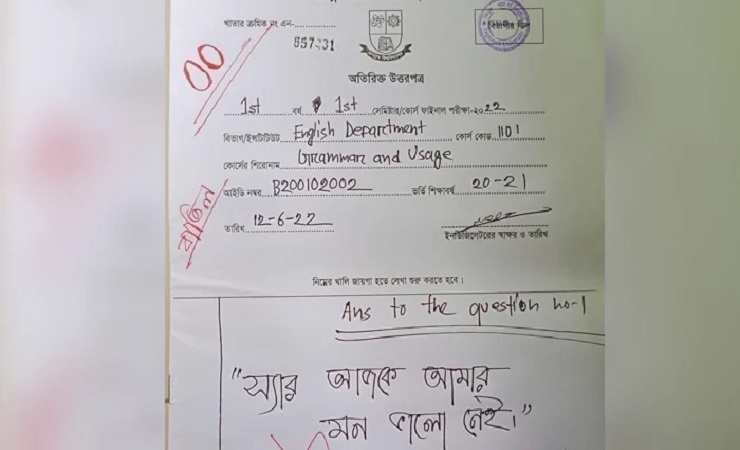 খাতার ক্রমিক নং এন-
857231
00
অতিরিক্ত উত্তরপত্র
1st বর্ষ 1st সেমিষ্টার/কোর্স ফাইনাল পরীক্ষা-২০22
বিভাগ/ইন্সটিটিউট English Department কোর্স কোড 1101
কোর্সের শিরোনাম Grammar and Usage
আইডি নম্বর B200102002 ভর্তি শিক্ষাবর্ষ 20-21
বাতিল
তারিখ 12-6-22
ইনভিজিলেটরের স্বাক্ষর ও তারিখ
নিম্নের খালি জায়গা হতে লেখা শুরু করতে হবে।
Ans to the question no-1
"স্যার আজকে আমার
মন ভালো নেই।"